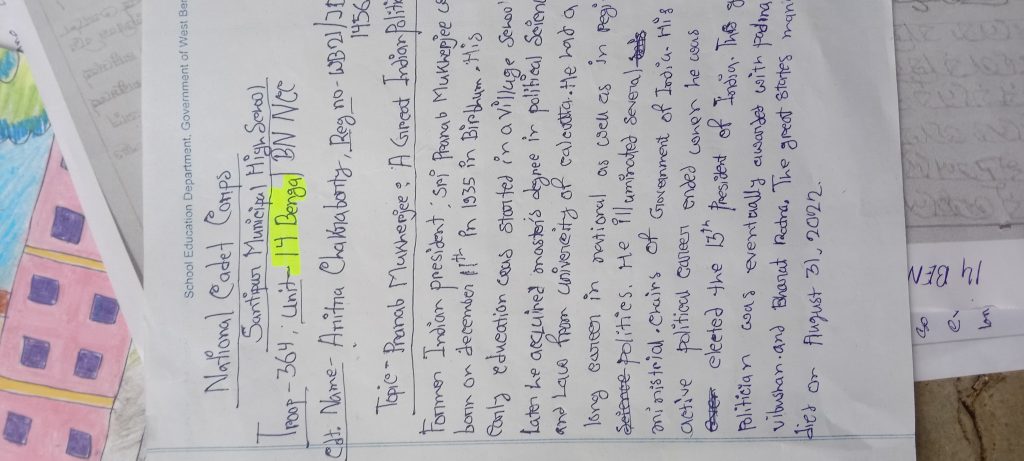 School Education Department, Government of West Ben
National Cadet Corps
Santipur Municipal High School
Troop - 364; Unit - 14 Bengal BN NCC
Cdt. Name - Anitria Chakraborty, Reg no - WB21/JD
1456
Topic - Pranab Mukherjee: A Great Indian Politi
Former Indian president, Sri Pranab Mukherjee
born on december 11th in 1935 in Birbhum. His
Early education was started in a village School
Later he acquired master's degree in political Scien
and Law from university of calcutta. He had a
long career in national as well as in regi
politics. He illuminated several
ministrial chairs of Government of India. His
active political career ended when he was
elected the 13th president of India. This
Politician was eventually awarded with Padma
Vibushan and Bharat Radna. The great states man
died on August 31, 2022
14 BEN
So